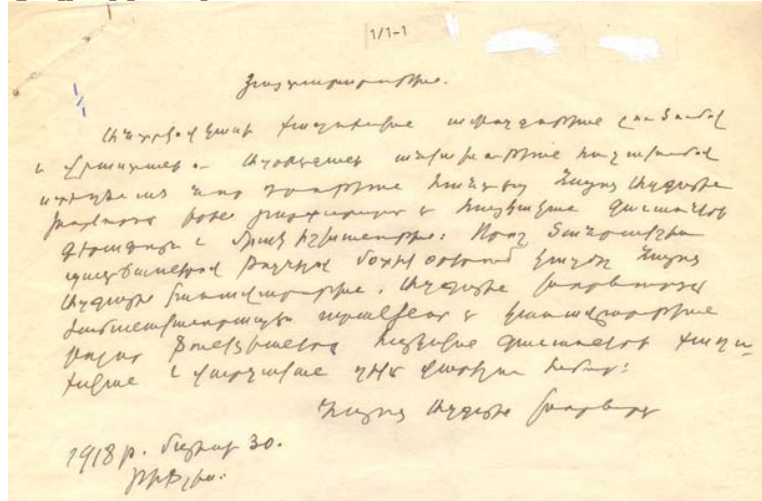 Յայտարարութիւն.
1/1-1
1/1
Անդրկովկասի քաղաքական ամբողջութեան լուծումով
և Վրաստանի և Ադրբէջանի անկախութեան հռչակումով
ստեղծված նոր դրութեան հանդէպ Հայոց Ազգային
խորհուրդը իրեն յայտարարում է հայկական գաւառների
գերագոյն և միակ իշխանութիւն: Որոշ ծանրակշիռ
պատճառներով թողնելով մօտիկ օրերում կազմել Հայոց
Ազգային կառավարութիւն, Ազգային խորհուրդը
ժամանակաւորապէս ստանձնում է կառավարութեան
բոլոր ֆունկցիաները հայկական գաւառների քաղա-
քական և վարչական ղեկը վարելու համար:
Հայոց Ազգային խորհուրդ
1918 թ. մայիսի 30.
Թիֆլիս: